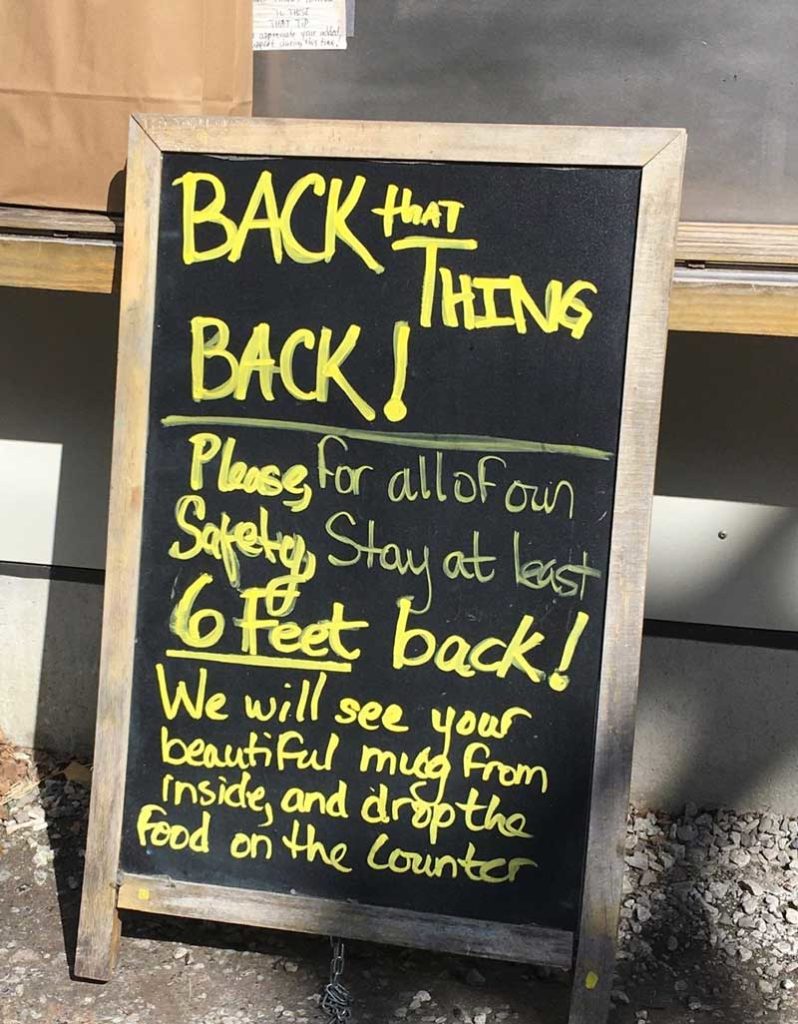 IF THESE
THAT TIP
appreciate your added
support during this time!
BACK THAT
THING
BACK!
Please, for all of our
Safety, Stay at least
6 feet back!
We will see your
beautiful mug from
inside, and drop the
food on the counter